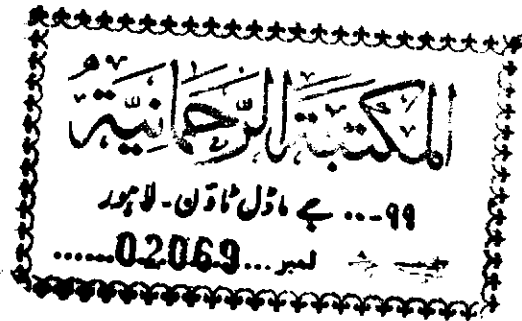 المكتبة الرحمانية
۹۹--- جے ماڈل ٹاؤن - لاہور
نمبر ...02069......